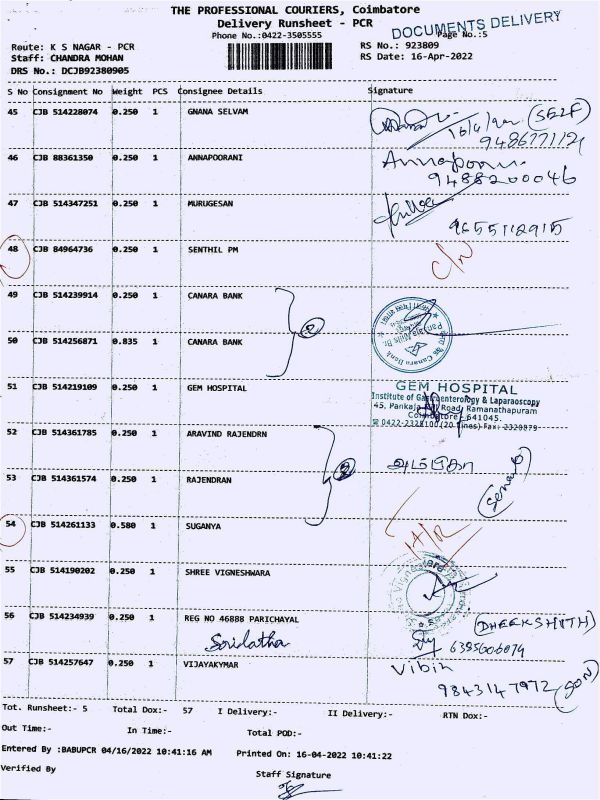 THE PROFESSIONAL COURIERS, Coimbatore
Delivery Runsheet - PCR
DOCUMENTS DELIVERY
Phone No.:0422-3505555
Page No.:5
Route: K S NAGAR - PCR
RS No.: 923809
Staff: CHANDRA MOHAN
RS Date: 16-Apr-2022
DRS No.: DCJB92380905
S No Consignment No Weight PCS Consignee Details Signature
45 CJB 514228074 0.250 1 GNANA SELVAM
(SELF)
46 CJB 88361350 0.250 1 ANNAPOORANI
9488200046
47 CJB 514347251 0.250 1 MURUGESAN
9655112915
48 CJB 84964736 0.250 1 SENTHIL PM
49 CJB 514239914 0.250 1 CANARA BANK
50 CJB 514256871 0.835 1 CANARA BANK
51 CJB 514219109 0.250 1 GEM HOSPITAL
GEM HOSPITAL
Institute of Gastroenterology & Laparaoscopy
45, Pankaja Mill Road, Ramanathapuram
Coimbatore - 641045.
0422-2328100 (20 Lines) Fax: 2320879
52 CJB 514361785 0.250 1 ARAVIND RAJENDRN
53 CJB 514361574 0.250 1 RAJENDRAN
54 CJB 514261133 0.580 1 SUGANYA
55 CJB 514190202 0.250 1 SHREE VIGNESHWARA
56 CJB 514234939 0.250 1 REG NO 46888 PARICHAYAL
(DHEEKSHITH)
Srilatha
57 CJB 514257647 0.250 1 VIJAYAKYMAR
Vibin
9843147972 (SON)
Tot. Runsheet:- 5 Total Dox:- 57 I Delivery:- II Delivery:- RTN Dox:-
Out Time:- In Time:- Total POD:-
Entered By :BABUPCR 04/16/2022 10:41:16 AM Printed On: 16-04-2022 10:41:22
Verified By
Staff Signature